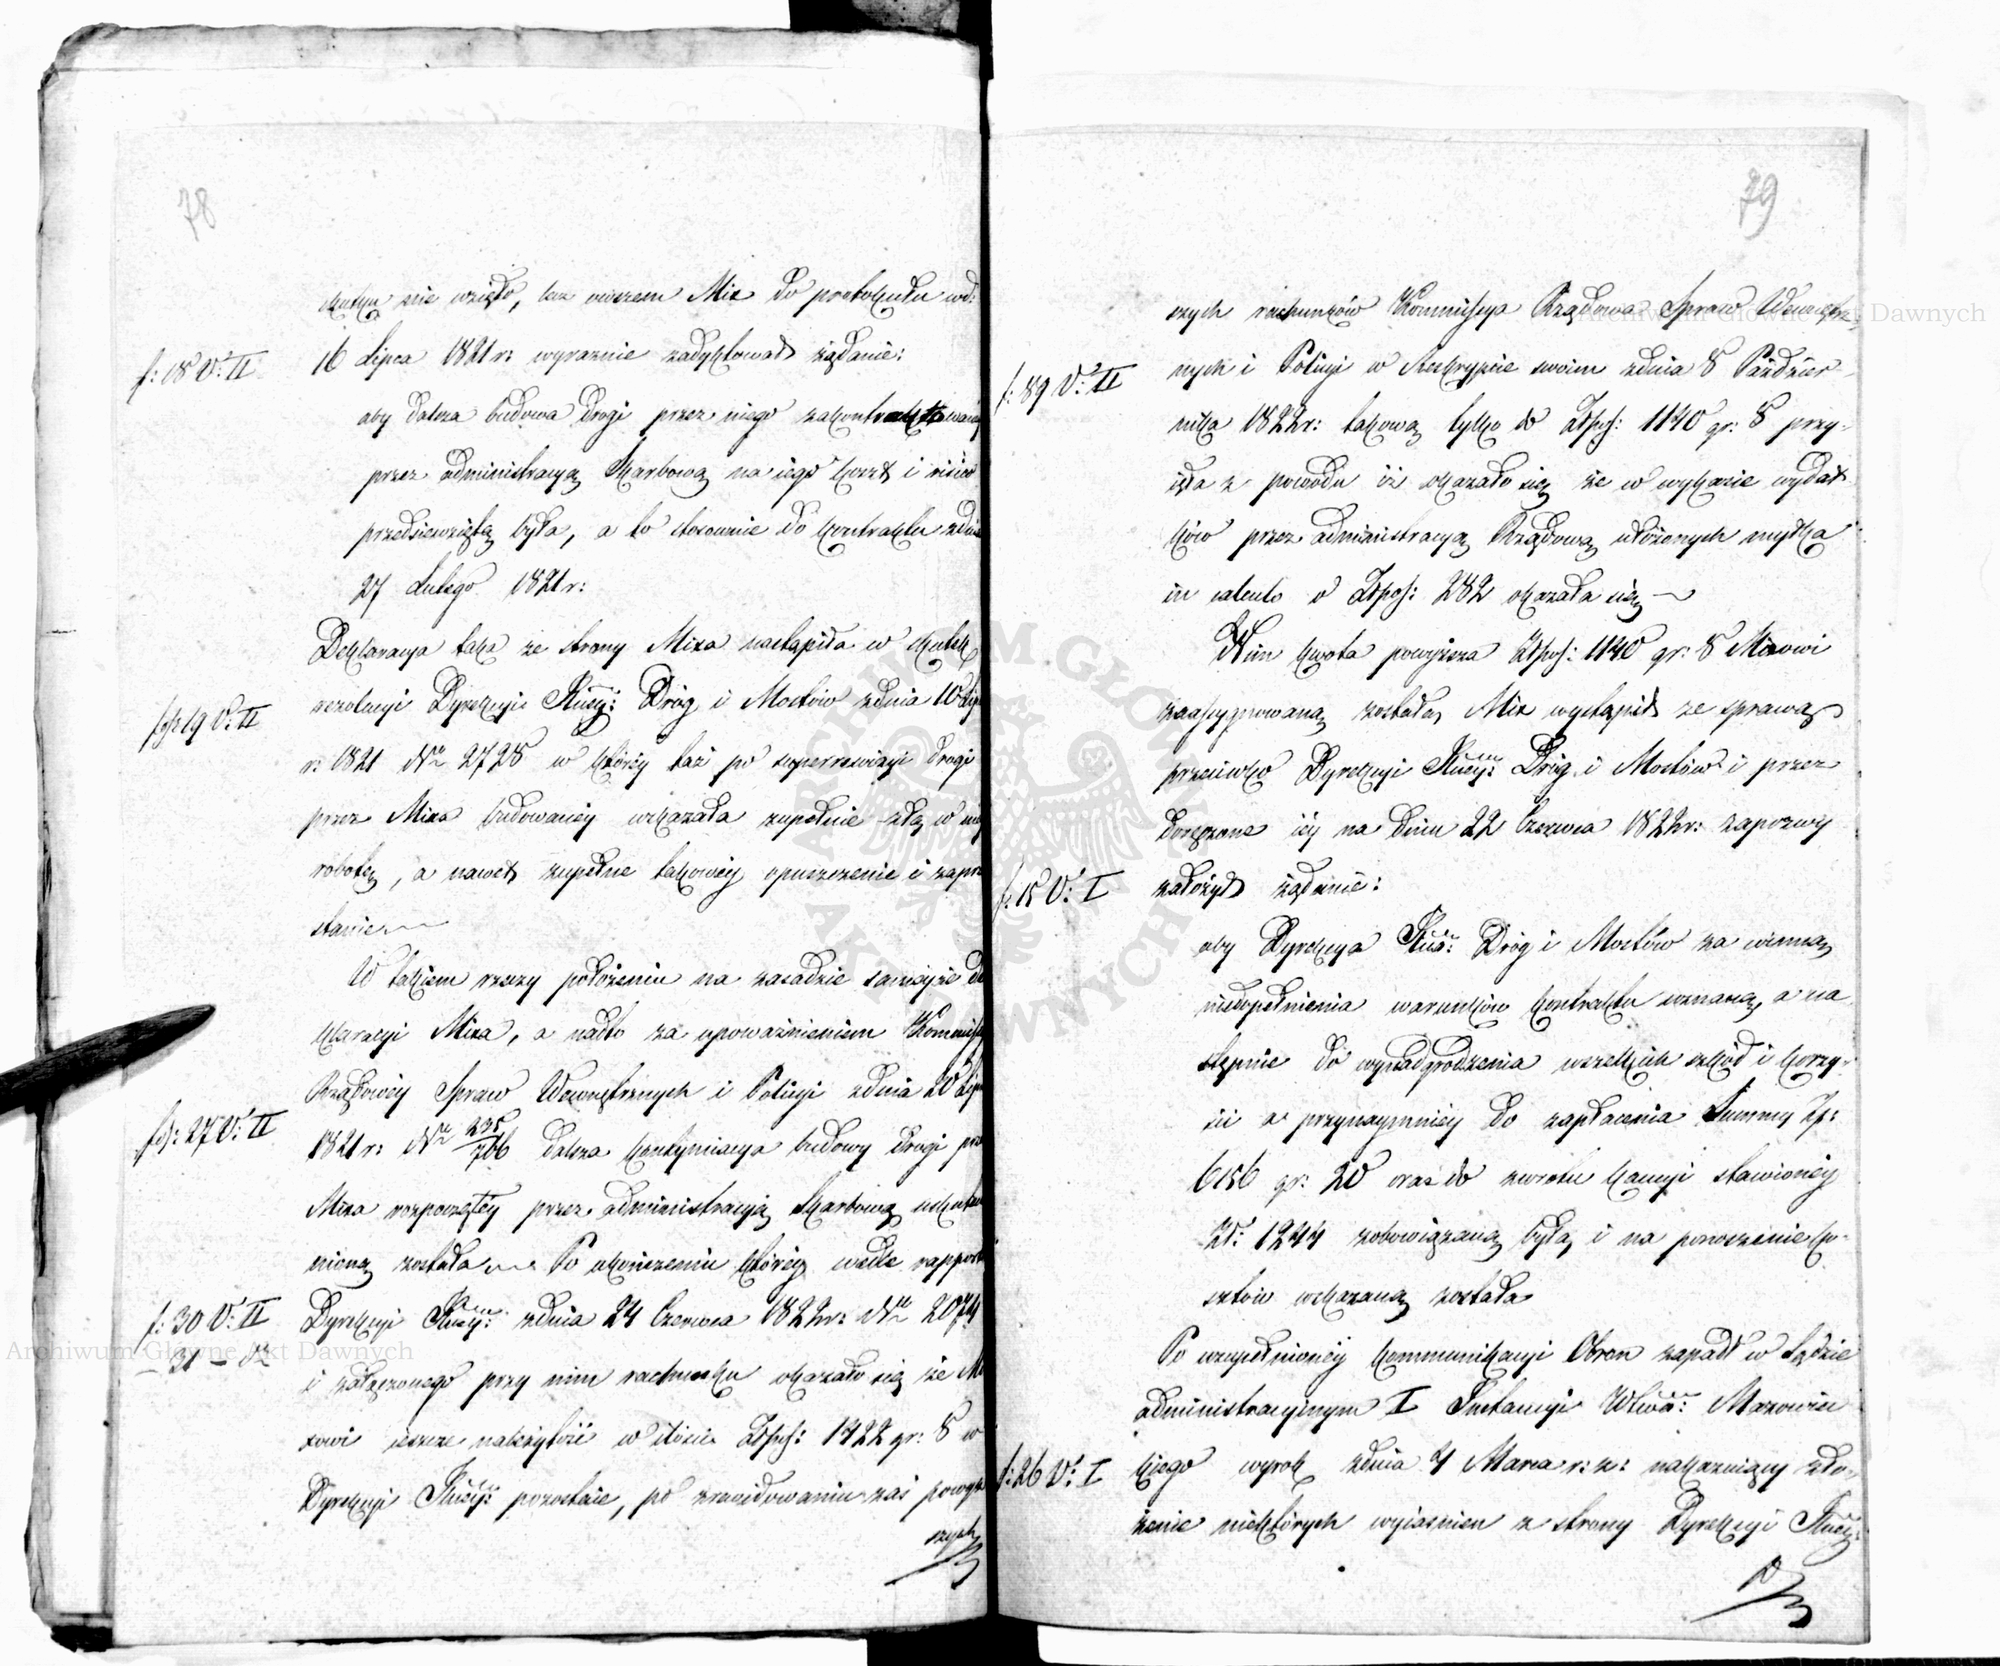 78
skutku nie wzięło, lecz owszem Mixa do protokułu w d:
f: 18 V: II
16 Lipca 1821 r: wyraznie zadyktował żądanie:
aby dalsza budowa drogi przez niego zakontraktowana
przez administracyą Skarbową na iego koszt i risico
przedsiewziętą była, a to stosownie do kontraktu zdnia
27 Lutego 1821 r:
Deklaracya taka ze strony Mixa nastąpiła w skutek
fol: 19 V: II
rezolucyi Dyrekcyi Dróg i Mostów zdnia 10 Lip
r: 1821 Nr 2728 w któréy taż po superrewizyi drogi
przez Mixa budowanéy wskazała zupełnie złą w niéy
robotę, a nawet zupełne takowéy opuszczenie i zaprze
stanie
W takiem rzeczy położeniu na zasadzie saméyże de
klaracyi Mixa, a nadto za upoważnieniem Kommissyi
Rządowéy Spraw Wewnętrznych i Policyi zdnia 20 Lip
fol: 27 V: II
1821 r: Nr 235/706 dalsza kontynuacya budowy drogi prz
Mixa rozpoczętéy przez administracyą Skarbową uskutecz
nioną została Po ukończeniu któréy wedle rapportu
f: 30 V: II
Dyrekcyi zdnia 24 Czerwca 1822 r: Nr 2074
– 31 –
i załączonego przy nim rachunku okazało się że Mi
xowi ieszcze należytość w ilości Złpol: 1422 gr: 8 w
Dyrekcyi pozostaie, po zrewidowaniu zaś powyż
szych
79
szych rachunków Kommissya Rządowa Spraw Wewnętrz
f: 89 V: II
nych i Policyi w Reskrypcie swoim zdnia 8 Paździer
nika 1822 r: takową tylko do Złpol: 1140 gr: 8 przy
ięła z powodu iż okazało się że w wykazie wydat
ków przez administracyą Rządową ułożonych myłka
in calculo o Złpol: 282 okazała się
Nim kwota powyższa Złpol: 1140 gr: 8 Mixowi
zaassygnowaną została, Mix wystąpił ze sprawą
przeciwko Dyrekcyi Dróg i Mostów i przez
doręczone iéy na dniu 22 Czerwca 1822 r: zapozwy
f: 15 V: I
założył żądanie:
aby Dyrekcya Dróg i Mostów za winną
niedopełnienia warunków kontraktu uznaną, a na
stępnie do wynadgrodzenia wszelkich szkód i korzy
ści a przynaymniéy do zapłacenia Summy Zp:
6156 gr: 20 oraz do zwrotu kaucyi stawionéy
Zł: 1244 zobowiązaną była, i na ponoszenie ko
sztów wskazaną została
Po uzupełnionéy kommunikacyi Obron zapadł w Sądzie
administracyinym I Instancyi Mazowiec
f: 26 V: I
kiego wyrok zdnia 4 Marca r: z: nakazuiący zło
żenie niektórych wyiasnien z strony Dyrekcyi